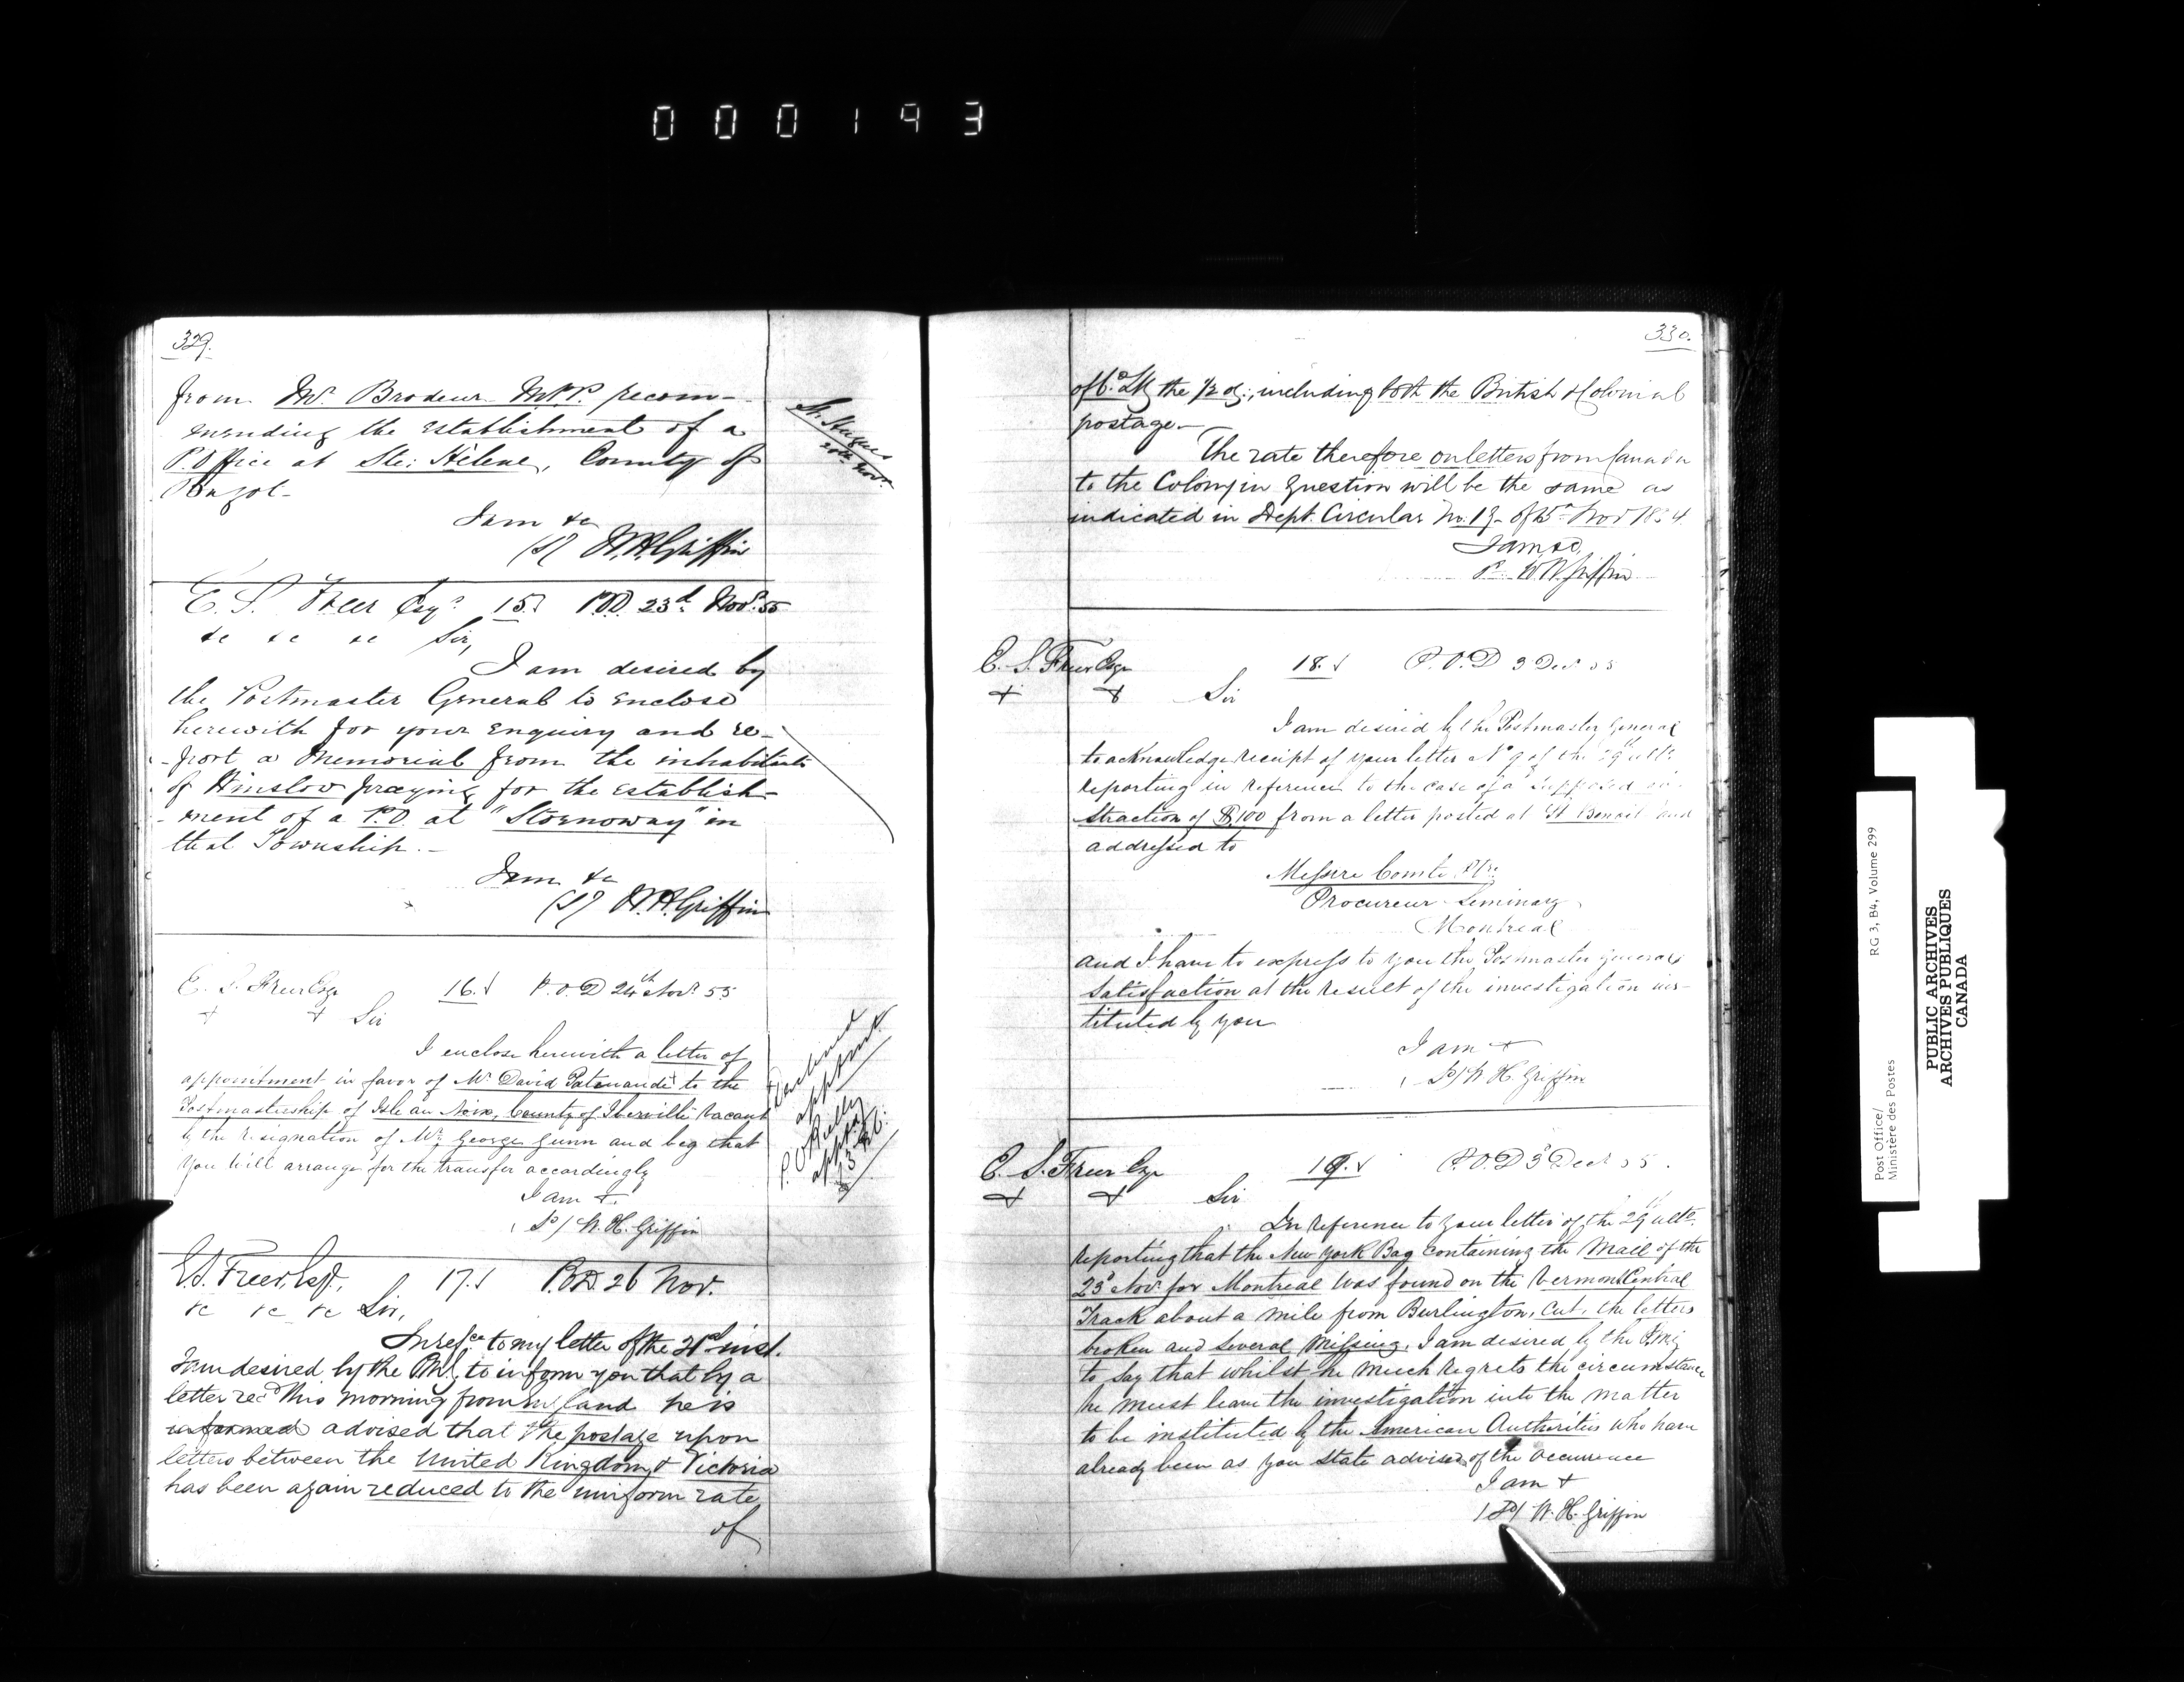 000193
329.
from Mr. Brodeur M.P.P. recom-
mending the establishment of a
P. Office at Ste: Hélène, County of
Bagot-
I am &c
(S) W.H. Griffin
St. Hugues
20th Nov.
E. S. Freer Esqr. 15. P.O.D. 23d. Nov. 55
&c &c &c Sir,
I am desired by
the Postmaster General to enclose
herewith for your enquiry and re-
-port a Memorial from the inhabitants
of Winslow praying for the establish-
-ment of a P.O. at "Stornoway" in
that Township.-
I am &c
(S) W.H. Griffin
E. S. Freer Esqr 16. P.O.D 24th Novr. 55
+ + Sir
I enclose herewith a letter of
appointment in favor of Mr David Patenaude to the
Postmastership of Isle au Noix, County of Iberville vacant
by the resignation of Mr. George Gunn and beg that
you will arrange for the transfer accordingly
I am +
Sd/ W. H. Griffin
E.S. Freer, Esqr., 17. P.O.D. 26 Nov.
&c &c &c Sir,
In refce. to my letter of the 21st inst.
I am desired by the P.M.G. to inform you that by a
letter recd. this morning from England he is
informed advised that the postage upon
letters between the United Kingdom & Victoria
has been again reduced to the uniform rate
of
330.
of 6d. Stg the 1/2 oz:, including both the British & Colonial
postage.-
The rate therefore on letters from Canada
to the Colony in question will be the same as
indicated in Dept. Circular No. 17- of 15th Nov 1854.
I am &c.
W H Griffin
E. S. Freer Esqr 18. P.O.D 3 Decr 55
+ + Sir
I am desired by the Postmaster General
to acknowledge receipt of your letter No 9 of the 29 ulto.
reporting in reference to the case of a supposed ab-
straction of $100 from a letter posted at St Benoit and
addressed to
Messire Comte Ptre
Procureur Seminary
Montreal
and I have to express to you the Postmaster Generals
satisfaction at the result of the investigation ins-
tituted by you
I am +
Sd/ W H. Griffin
E. S. Freer Esqr 19. P.O.D 3 Decr 55.
+ + Sir
In reference to your letter of the 29 ulto.
reporting that the New York Bag containing the Mail of the
23d Nov. for Montreal was found on the Vermont Central
Track about a mile from Burlington, cut, the letters
broken and several missing, I am desired by the P.M.G
to say that whilst he much regrets the circumstance
he must leave the investigation into the matter
to be instituted by the American Authorities who have
already been as you state advised of the occurrence
I am +
Sd/ W. H. Griffin
Post Office/
Ministère des Postes
RG 3, B4, Volume 299
PUBLIC ARCHIVES
ARCHIVES PUBLIQUES
CANADA